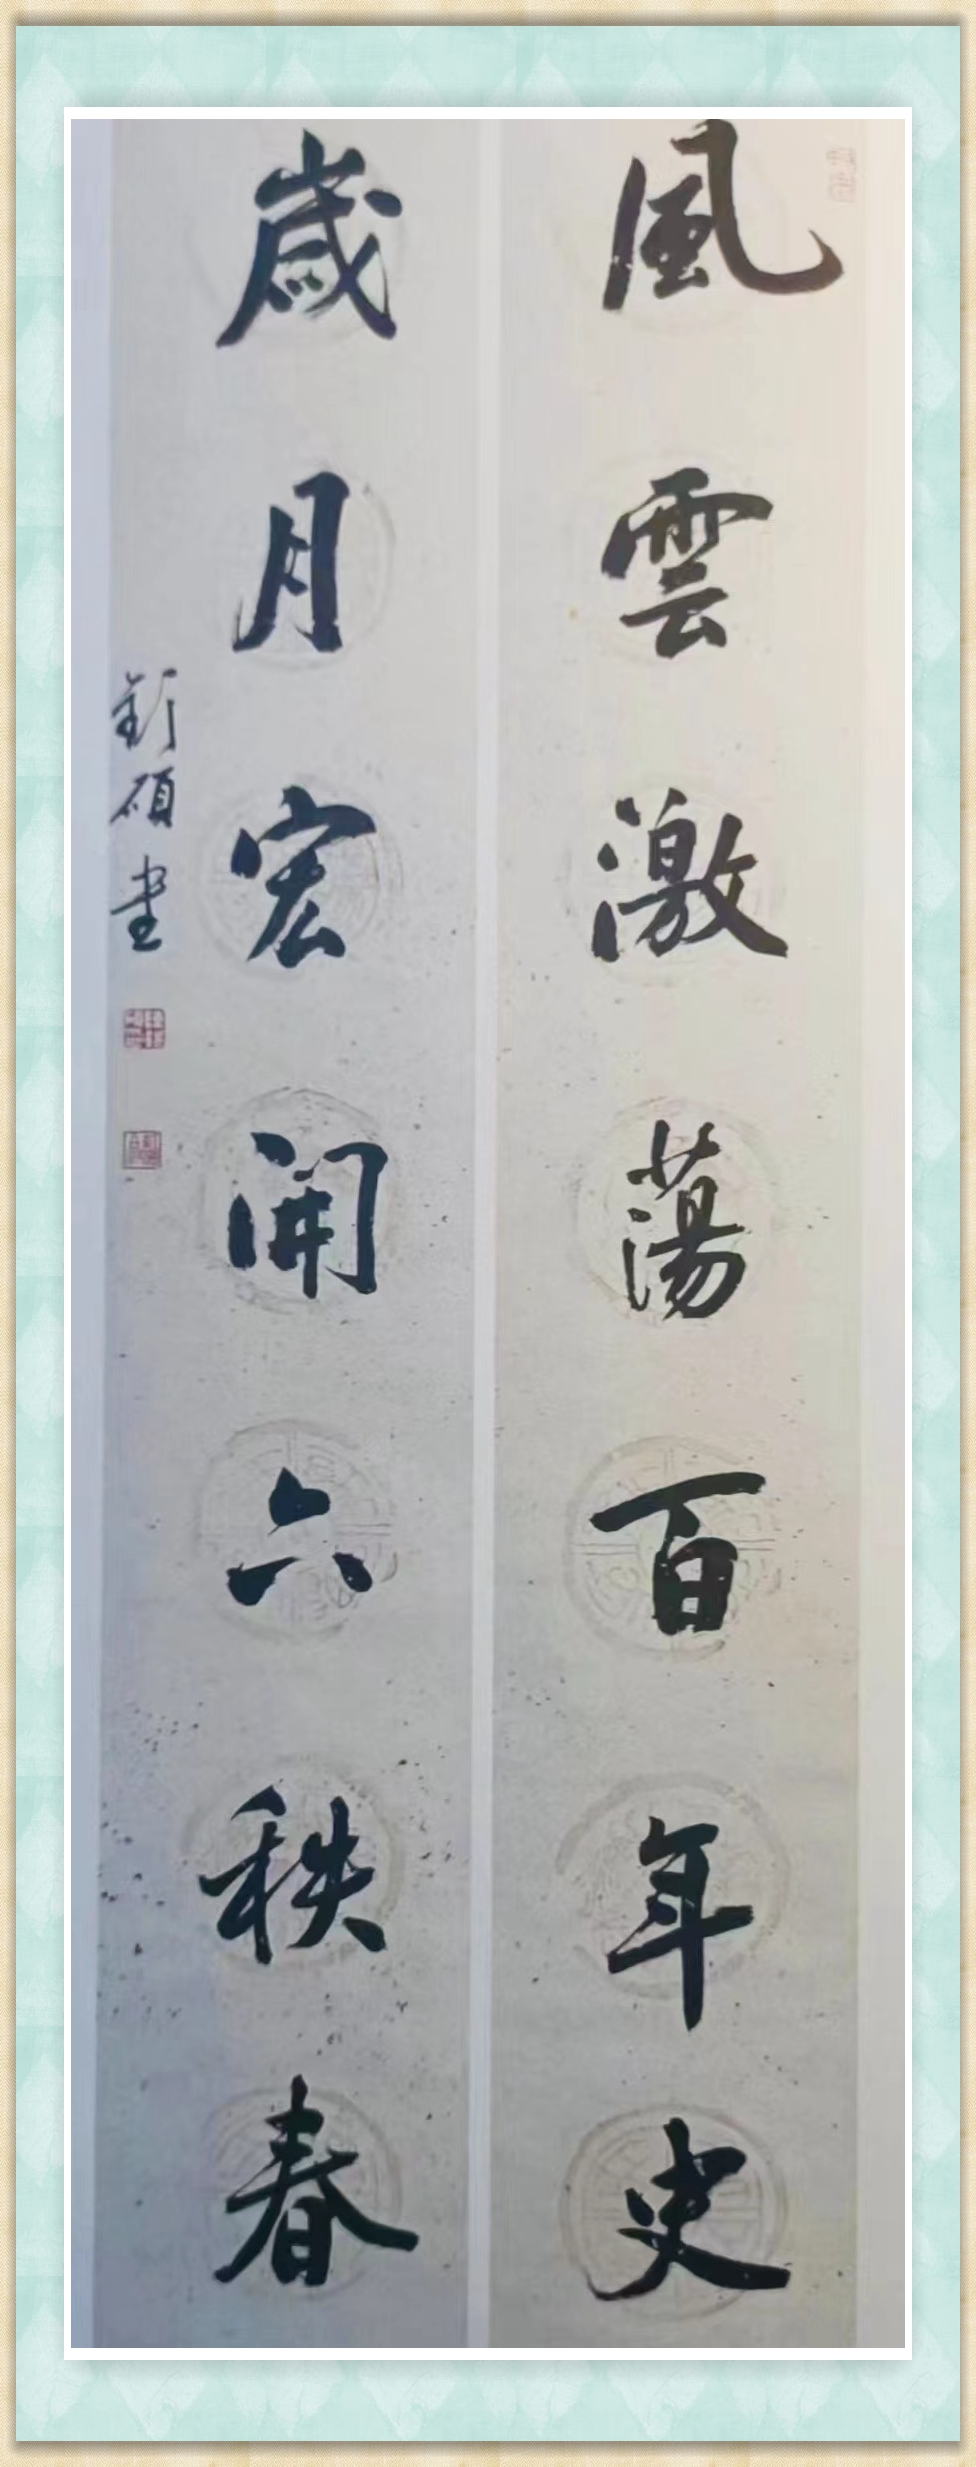 風雲激蕩百年史
歲月宏開六秩春
劉碩書